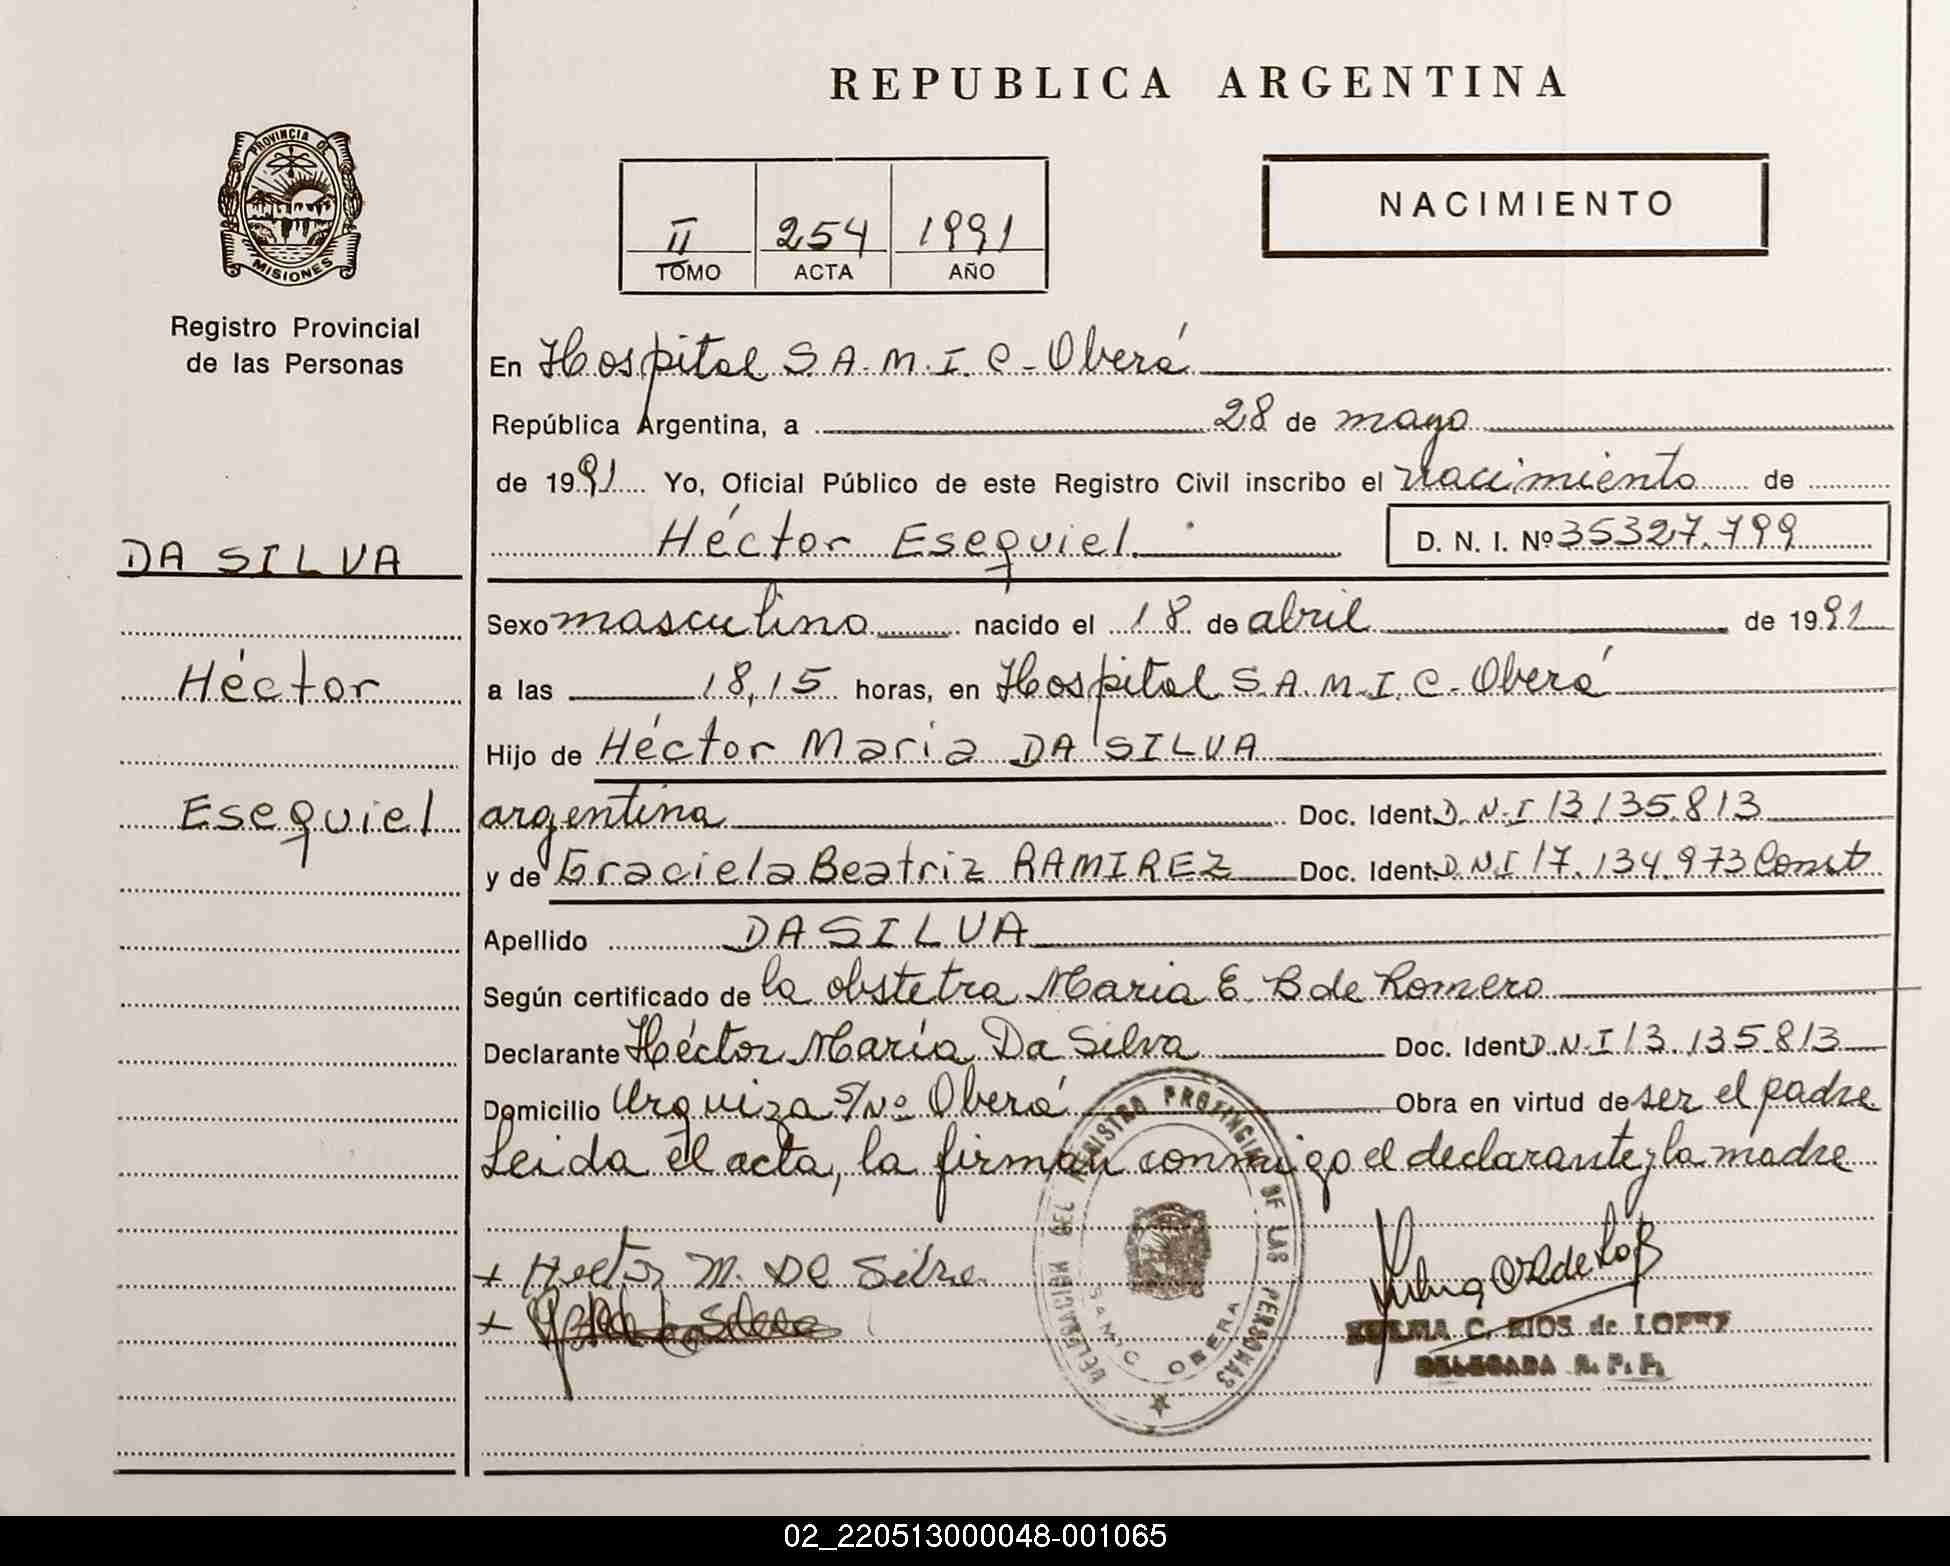 REPUBLICA ARGENTINA
PROVINCIA DE
MISIONES
Registro Provincial
de las Personas
II 254 1991
TOMO ACTA AÑO
NACIMIENTO
En Hospital S.A.M.I.C - Oberá
República Argentina, a 28 de mayo
de 1991 Yo, Oficial Público de este Registro Civil inscribo el nacimiento de
Héctor Esequiel D. N. I. Nº 35327.799
DA SILVA
Héctor
Esequiel
Sexo masculino nacido el 18 de abril de 1991
a las 18,15 horas, en Hospital S.A.M.I.C - Oberá
Hijo de Héctor Maria DA SILVA
argentina Doc. Ident. D.N.I 13.135.813
y de Graciela Beatriz RAMIREZ Doc. Ident. D.N.I 17.134.973 Const
Apellido DA SILVA
Según certificado de la obstetra Maria E. B de Romero
Declarante Héctor María Da Silva Doc. Ident D.N.I 13.135.813
Domicilio Urquiza S/Nº Oberá Obra en virtud de ser el padre
Leida el acta, la firman conmigo el declarante y la madre
+ Hector M. Da Silva
+
REGISTRO PROVINCIAL DE LAS PERSONAS
DELEGACION
SAMIC OBERA
C. RIOS de LOPEZ
DELEGADA R. P. P.
02_220513000048-001065